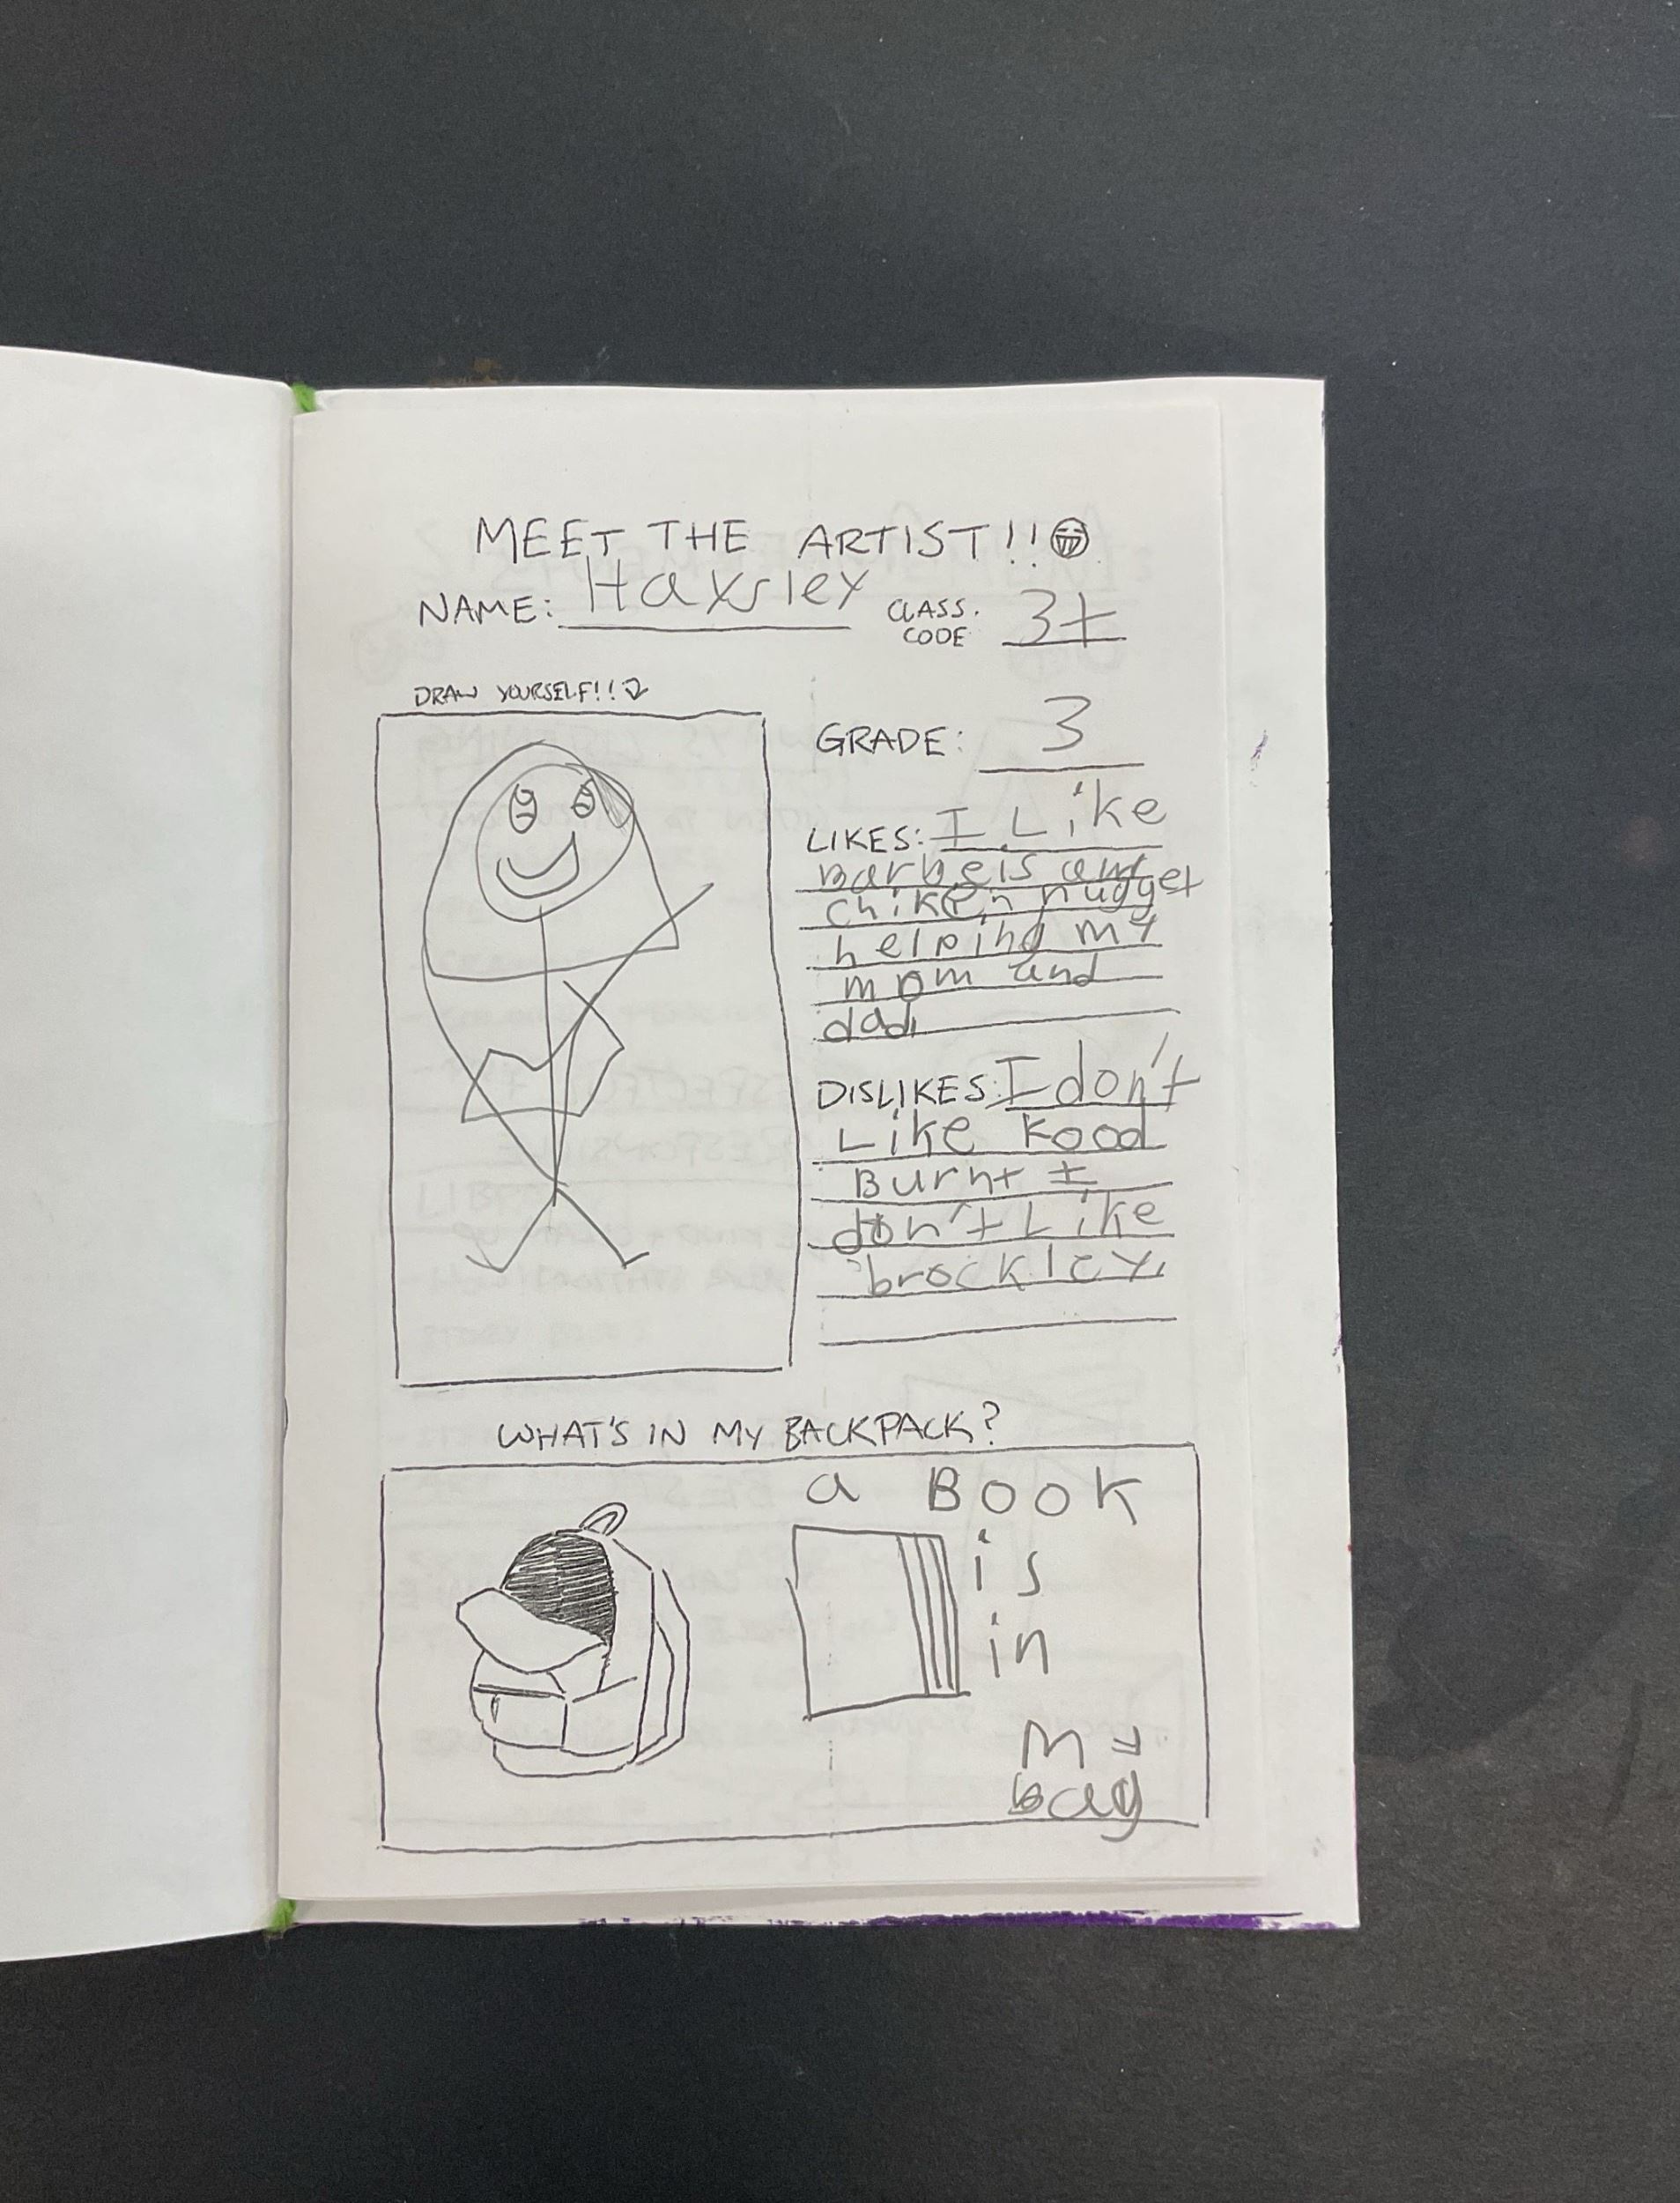 MEET THE ARTIST!!
NAME: Haxsley CLASS. CODE 3t
DRAW YOURSELF!!
GRADE: 3
LIKES: I Like
barbeis and
chiken nugget
helping my
mom and
dad.
DISLIKES: I don't
Like Food
Burnt I
don't Like
brockley.
WHAT'S IN MY BACKPACK?
a Book
is
in
My
bag